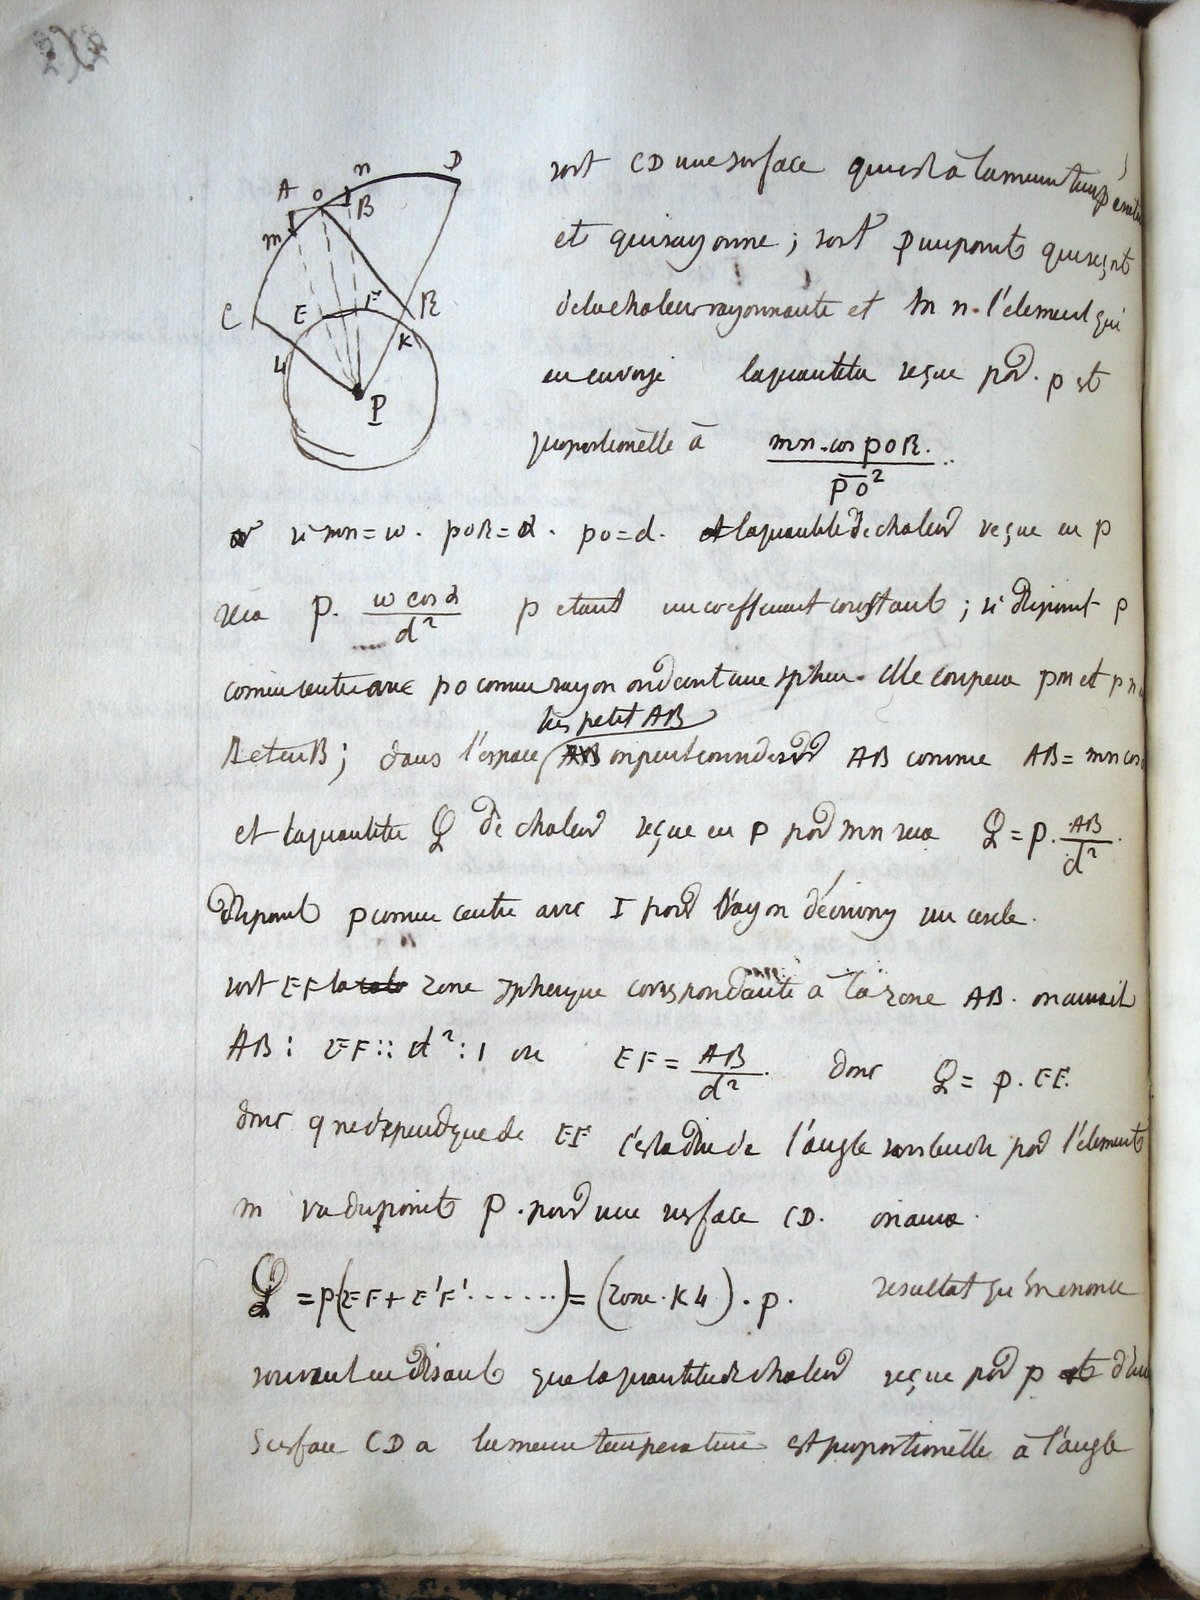 A O n D
m B
C E F R
4 K
P
soit CD une surface qui est à la meme températu
et qui rayonne ; soit p un point qui reçoit
de la chaleur rayonnante et m n l'élement qui
en envoye la quantité reçue par p est
proportionelle à mn.cos poR. / po²
si mn = w. poR = α. po = d. la quantité de chaleur reçue en p
sera p. w cos α / d² p etant un coefficient constant ; si du point p
comme centre avec po comme rayon on décrit une sphere. Elle coupera pm et pn
A et en B ; dans l'espace très petit AB on peut considerer AB comme AB = mn cos
et la quantité Q de chaleur reçue en p par mn sera Q = p. AB / d²
du point p comme centre avec I pour rayon décrivons un cercle.
soit EF la zone spherique correspondante à la zone AB. on aurait
AB : EF :: d² : 1 ou EF = AB / d². donc Q = p. EF.
donc q ne depend que de EF c'est à dire de l'angle sous tendu par l'élement
m vu du point p. pour une surface CD. on aura.
Q = p(EF + E'F' ......) = (zone. K4). p. resultat qu'on enonce
souvent en disant que la quantité de chaleur reçue par p d'une
surface CD a la meme temperature est proportionelle à l'angle